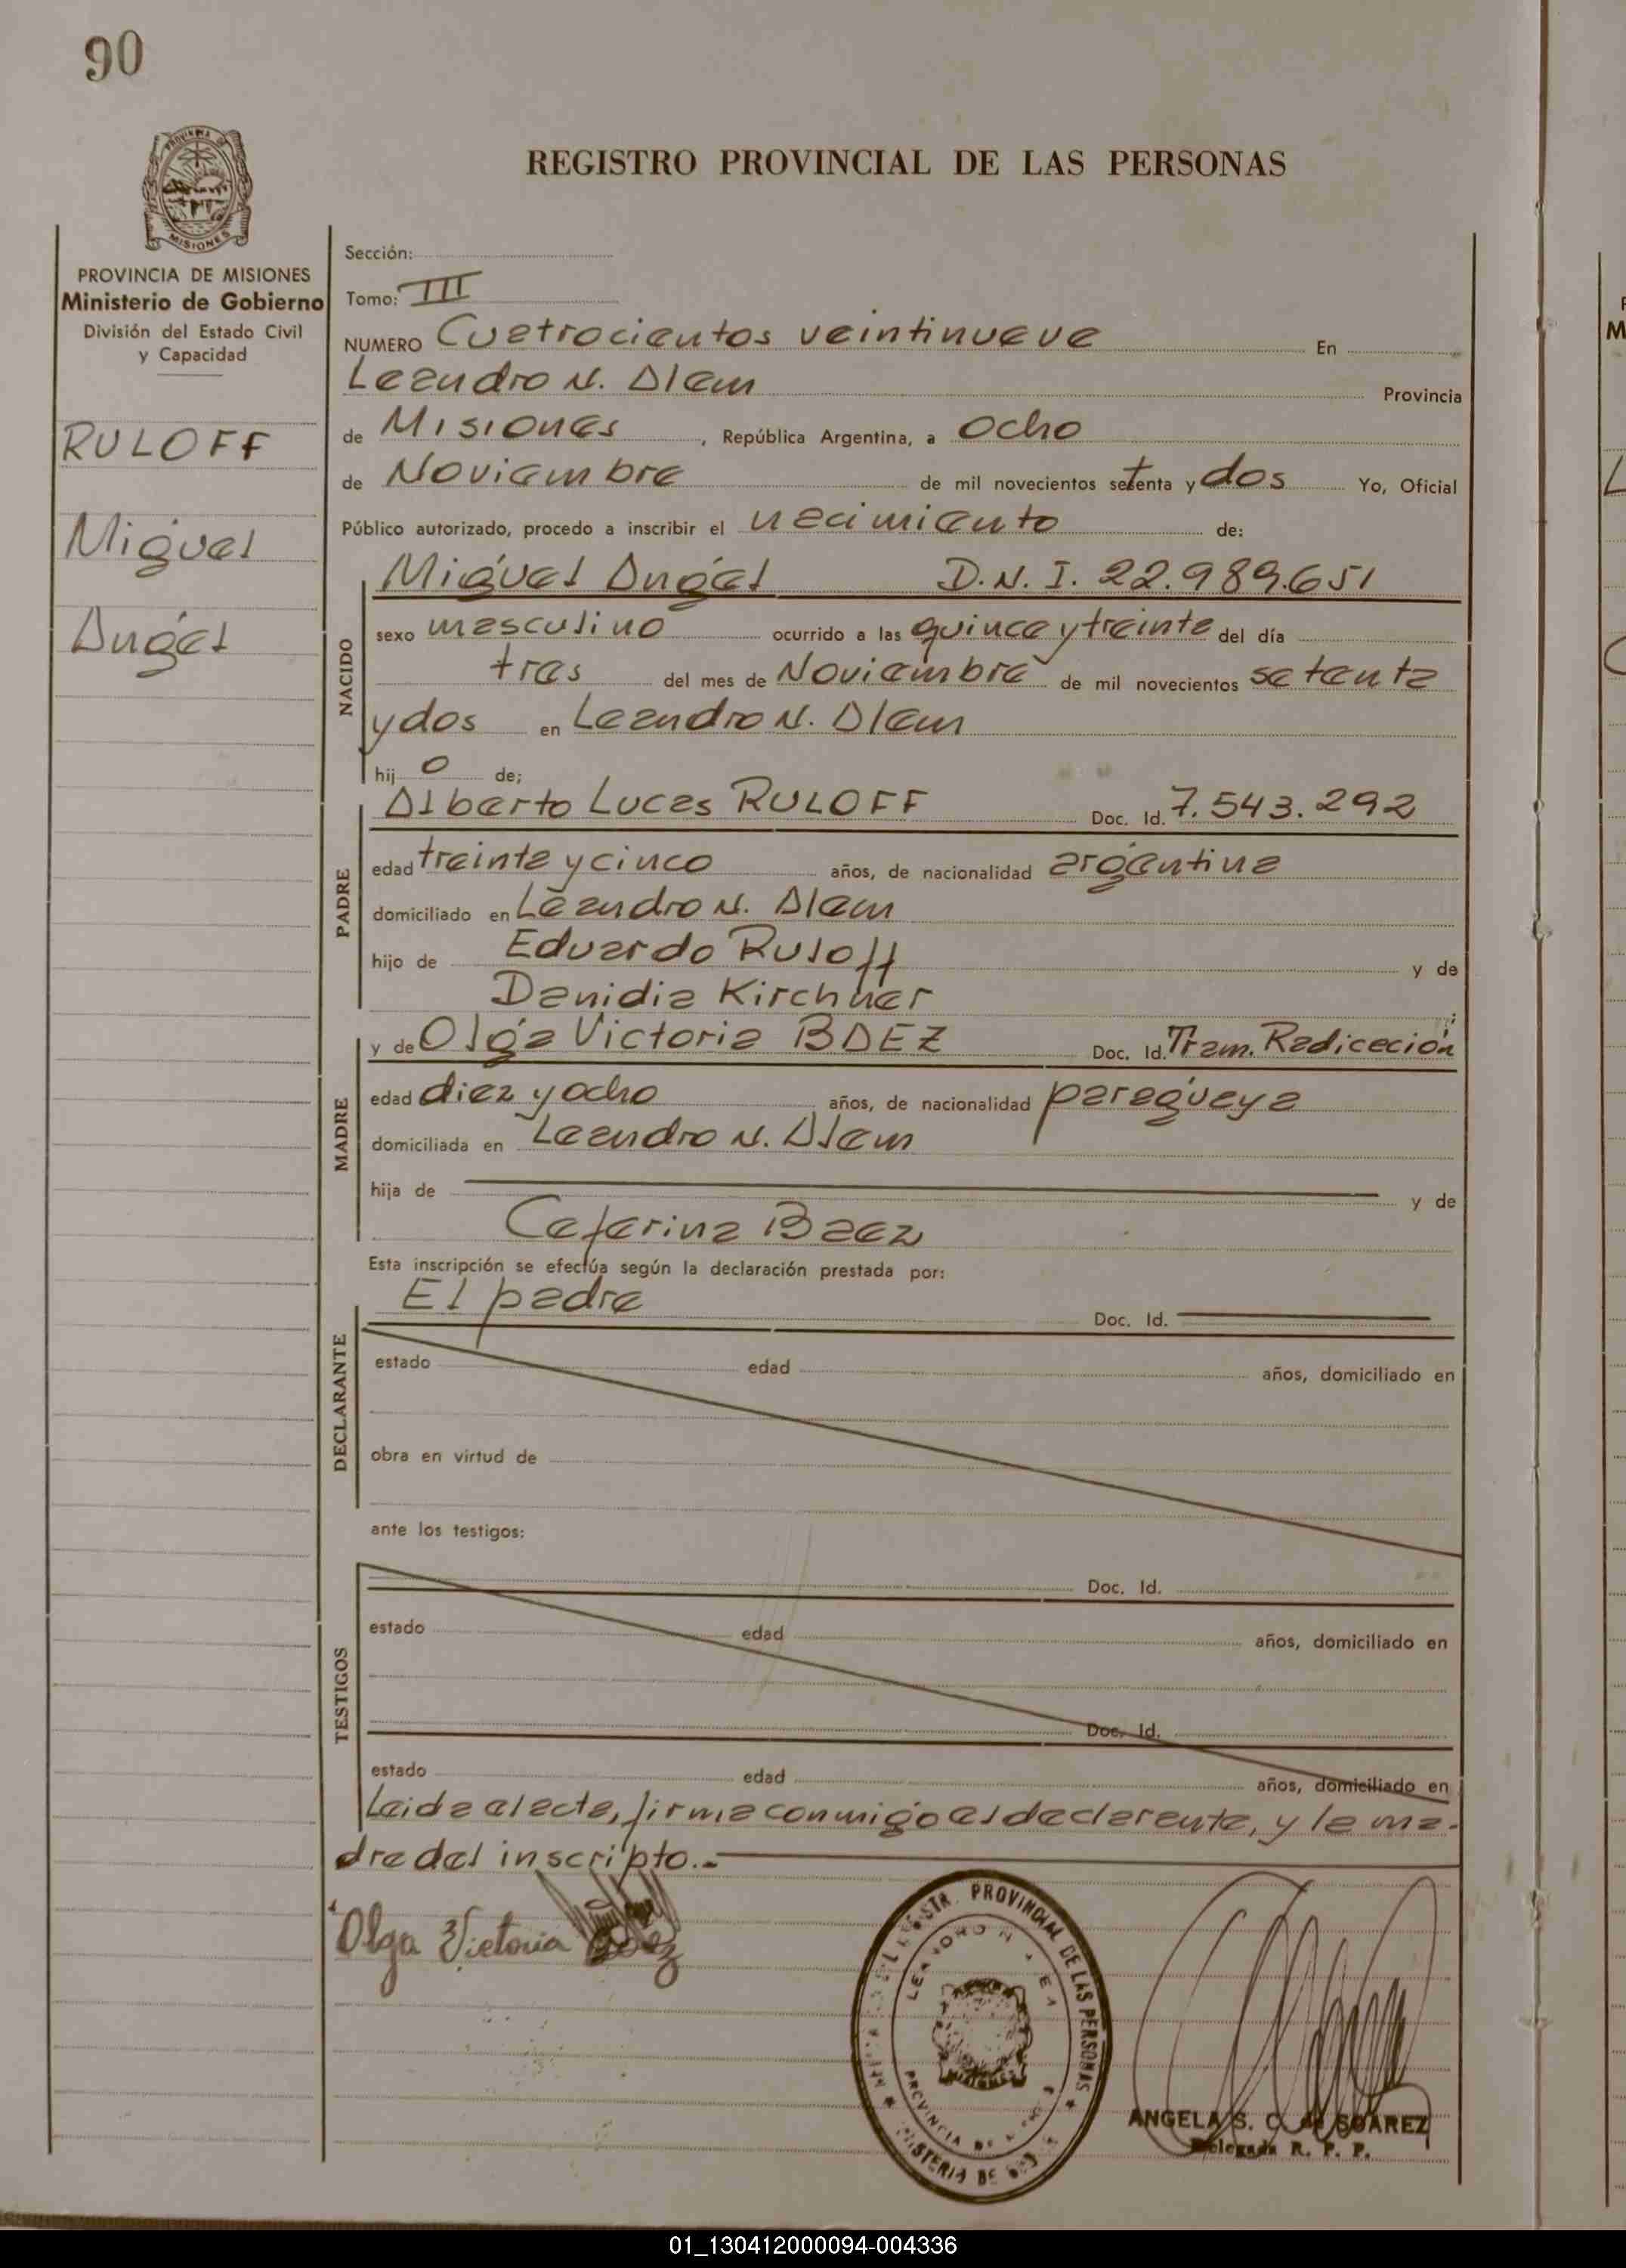 90
REGISTRO PROVINCIAL DE LAS PERSONAS
PROVINCIA DE
MISIONES
PROVINCIA DE MISIONES
Ministerio de Gobierno
División del Estado Civil
y Capacidad
RULOFF
Miguel
Angel
Sección:
Tomo: III
NUMERO Cuatrocientos veintinueve En
Leandro N. Alem Provincia
de Misiones, República Argentina, a Ocho
de Noviembre de mil novecientos setenta y dos Yo, Oficial
Público autorizado, procedo a inscribir el nacimiento de:
NACIDO
Miguel Angel D.N.I. 22.989.651
sexo masculino ocurrido a las quince y treinta del día
tres del mes de Noviembre de mil novecientos setenta
y dos en Leandro N. Alem
hijo de;
PADRE
Alberto Lucas RULOFF Doc. Id. 7.543.292
edad treinta y cinco años, de nacionalidad argentina
domiciliado en Leandro N. Alem
hijo de Eduardo Ruloff y de
Danidia Kirchner
MADRE
y de Olga Victoria BAEZ Doc. Id. Tram. Radicación
edad diez y ocho años, de nacionalidad paragüaya
domiciliada en Leandro N. Alem
hija de y de
Ceferina Baez
Esta inscripción se efectúa según la declaración prestada por:
DECLARANTE
El padre Doc. Id.
estado edad años, domiciliado en
obra en virtud de
ante los testigos:
TESTIGOS
Doc. Id.
estado edad años, domiciliado en
Doc. Id.
estado edad años, domiciliado en
Leida el acta, firma conmigo el declarante, y la ma-
dre del inscripto.-
Olga Victoria Baez
PROVINCIAL DE LAS PERSONAS
PROVINCIA DE
ANGELA S. C. de SOAREZ
Delegada R. P. P.
01_130412000094-004336